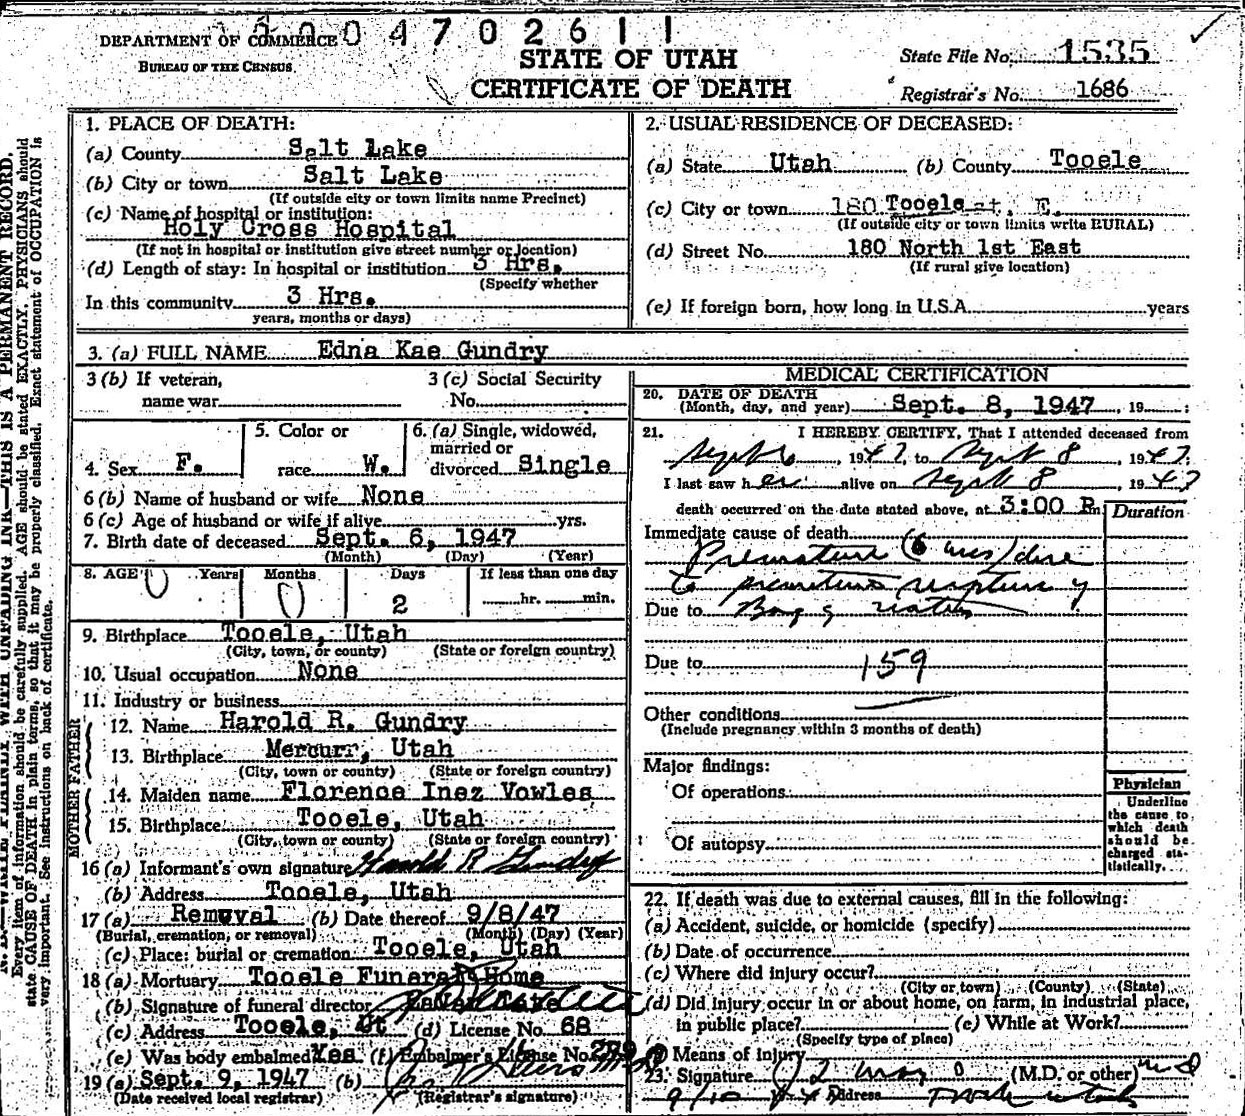 0004702611
DEPARTMENT OF COMMERCE
BUREAU OF THE CENSUS
STATE OF UTAH
CERTIFICATE OF DEATH
State File No. 1535
Registrar's No. 1686
1. PLACE OF DEATH:
(a) County Salt Lake
(b) City or town Salt Lake
(If outside city or town limits name Precinct)
(c) Name of hospital or institution:
Holy Cross Hospital
(If not in hospital or institution give street number or location)
(d) Length of stay: In hospital or institution 3 Hrs.
(Specify whether
In this community 3 Hrs.
years, months or days)
2. USUAL RESIDENCE OF DECEASED:
(a) State Utah (b) County Tooele
(c) City or town Tooele
(If outside city or town limits write RURAL)
(d) Street No. 180 North 1st East
(If rural give location)
(e) If foreign born, how long in U.S.A. years
3. (a) FULL NAME Edna Kae Gundry
3 (b) If veteran,
name war
3 (c) Social Security
No.
4. Sex F.
5. Color or
race W.
6. (a) Single, widowed,
married or
divorced Single
6 (b) Name of husband or wife None
6 (c) Age of husband or wife if alive yrs.
7. Birth date of deceased Sept. 6, 1947
(Month) (Day) (Year)
8. AGE Years Months Days If less than one day
0 0 2 hr. min.
9. Birthplace Tooele, Utah
(City, town, or county) (State or foreign country)
10. Usual occupation None
11. Industry or business
FATHER
12. Name Harold R. Gundry
13. Birthplace Mercurr, Utah
(City, town or county) (State or foreign country)
MOTHER
14. Maiden name Florence Inez Vowles
15. Birthplace Tooele, Utah
(City, town or county) (State or foreign country)
16 (a) Informant's own signature Harold R Gundry
(b) Address Tooele, Utah
17 (a) Removal (b) Date thereof 9/8/47
(Burial, cremation, or removal) (Month) (Day) (Year)
(c) Place: burial or cremation Tooele, Utah
18 (a) Mortuary Tooele Funeral Home
(b) Signature of funeral director
(c) Address Tooele, Ut (d) License No. 68
(e) Was body embalmed? Yes (f) Embalmer's License No.
19 (a) Sept. 9, 1947 (b)
(Date received local registrar) (Registrar's signature)
MEDICAL CERTIFICATION
20. DATE OF DEATH
(Month, day, and year) Sept. 8, 1947, 19
21. I HEREBY CERTIFY, That I attended deceased from
Sept 6, 1947, to Sept 8, 1947.
I last saw her alive on Sept 8, 1947
death occurred on the date stated above, at 3:00 P m Duration
Immediate cause of death
Premature (6 mos) due
to premature rupture of
Due to Bag of waters
Due to 159
Other conditions
(Include pregnancy within 3 months of death)
Major findings:
Of operations
Of autopsy
Physician
Underline
the cause to
which death
should be
charged sta-
tistically.
22. If death was due to external causes, fill in the following:
(a) Accident, suicide, or homicide (specify)
(b) Date of occurrence
(c) Where did injury occur?
(City or town) (County) (State)
(d) Did injury occur in or about home, on farm, in industrial place,
in public place? (e) While at Work?
(Specify type of place)
Means of injury
23. Signature (M.D. or other) MD
9/10 Address Tooele Utah
N. B.—WRITE PLAINLY WITH UNFADING INK—THIS IS A PERMANENT RECORD.
Every item of information should be carefully supplied. AGE should be stated EXACTLY. PHYSICIANS should
state CAUSE OF DEATH in plain terms, so that it may be properly classified. Exact statement of OCCUPATION is
very important. See instructions on back of certificate.